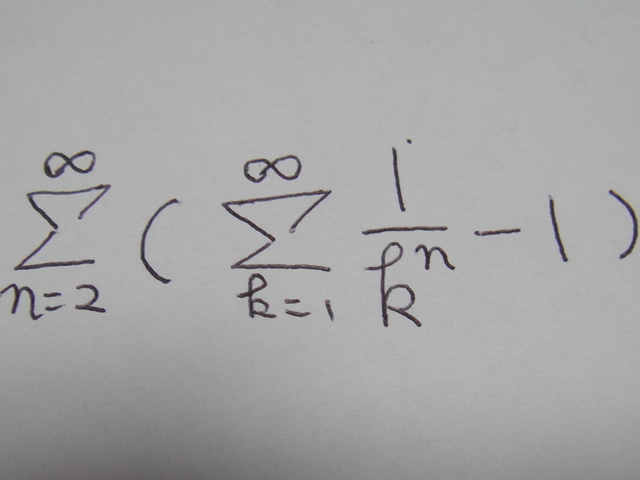 \sum_{n=2}^{\infty} ( \sum_{k=1}^{\infty} \frac{1}{k^n} - 1 )